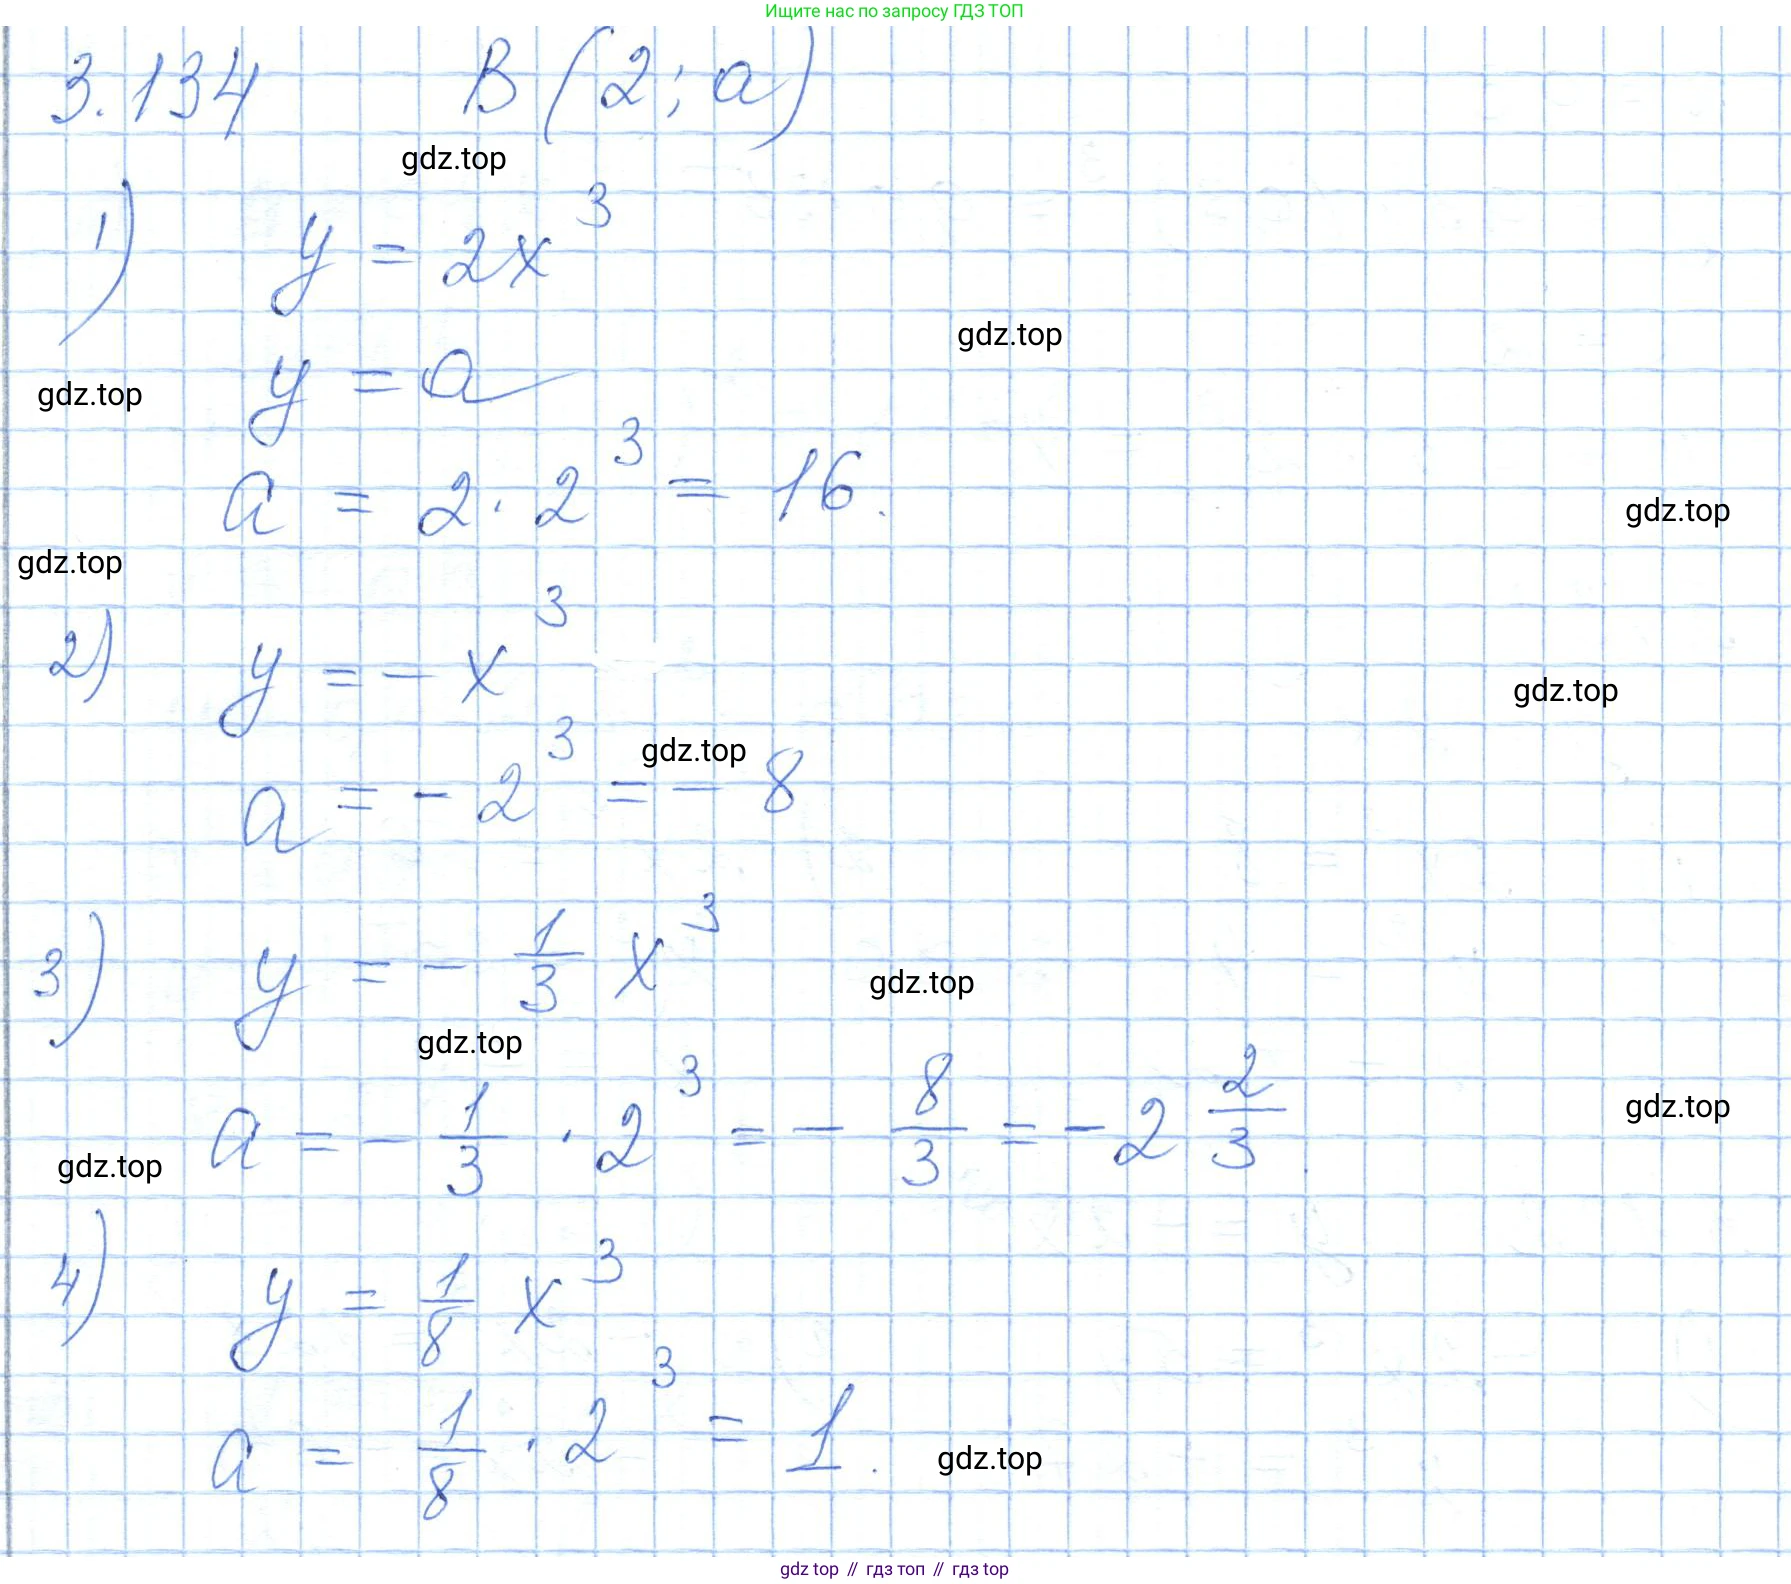 Ищите нас по запросу ГДЗ ТОП
3.134 B(2; a)
gdz.top
1) y = 2x³
gdz.top
y = a
gdz.top
a = 2 · 2³ = 16.
gdz.top
gdz.top
2) y = - x³
gdz.top
gdz.top
a = - 2³ = - 8
3) y = - 1/3 x³
gdz.top
gdz.top
a = - 1/3 · 2³ = - 8/3 = - 2 2/3.
gdz.top
gdz.top
4) y = 1/8 x³
a = 1/8 · 2³ = 1.
gdz.top
gdz top // гдз топ // гдз top